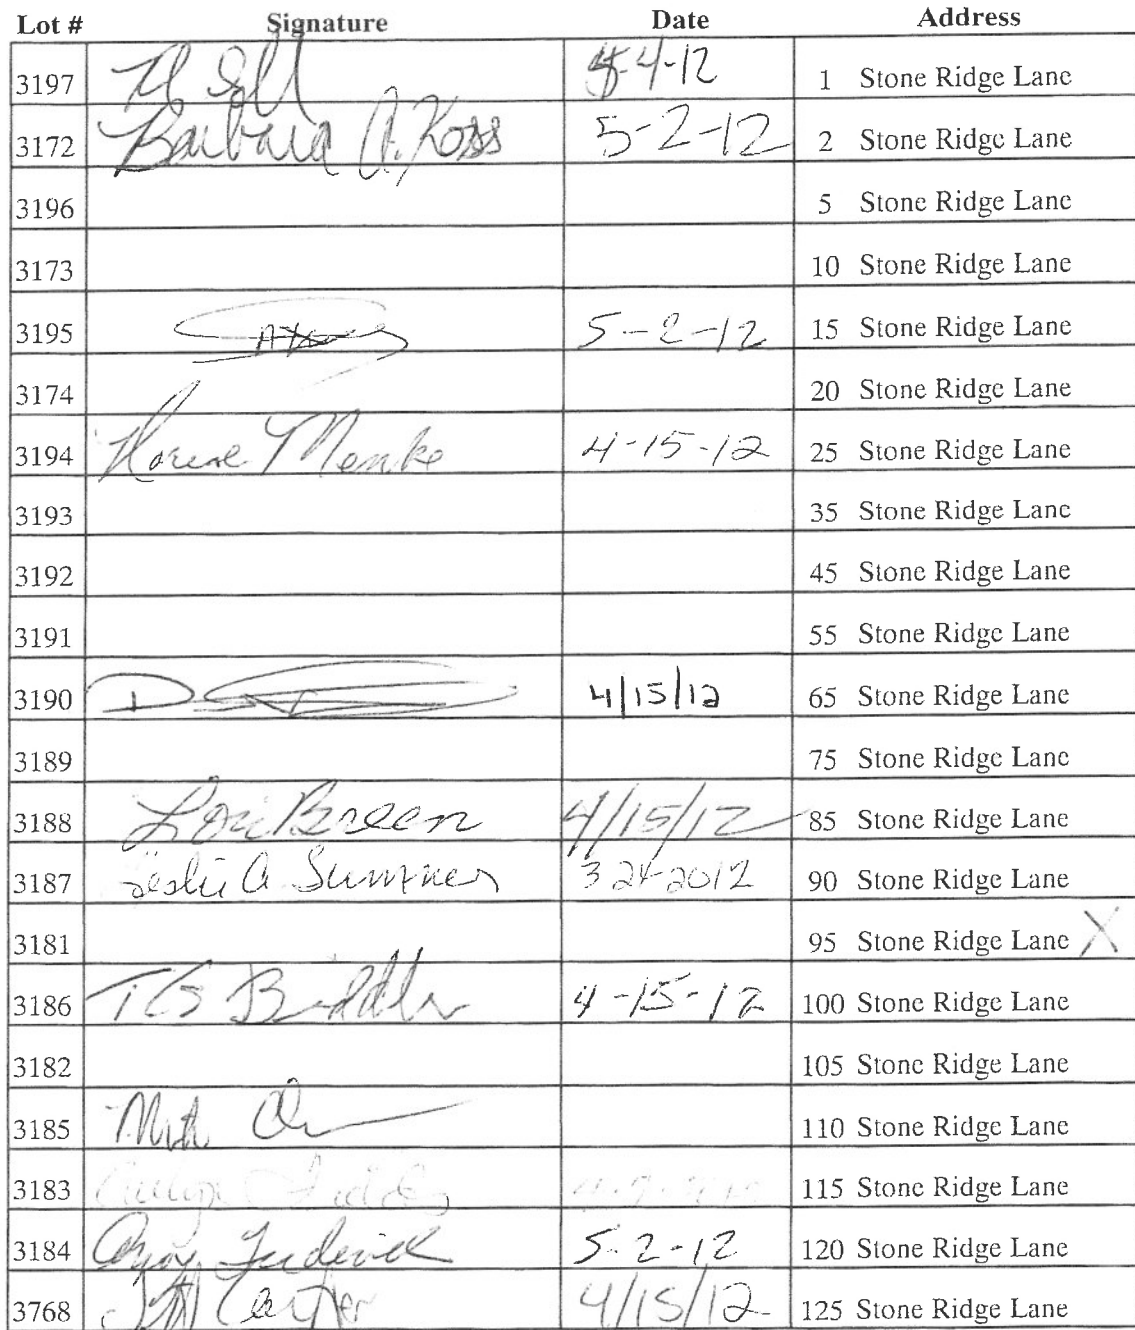 Lot # Signature Date Address
3197 5-4-12 1 Stone Ridge Lane
3172 Barbara A. Ross 5-2-12 2 Stone Ridge Lane
3196 5 Stone Ridge Lane
3173 10 Stone Ridge Lane
3195 5-2-12 15 Stone Ridge Lane
3174 20 Stone Ridge Lane
3194 Florene Menke 4-15-12 25 Stone Ridge Lane
3193 35 Stone Ridge Lane
3192 45 Stone Ridge Lane
3191 55 Stone Ridge Lane
3190 D 4/15/12 65 Stone Ridge Lane
3189 75 Stone Ridge Lane
3188 Lori Breen 4/15/12 85 Stone Ridge Lane
3187 Leslie A Sumner 3-24-2012 90 Stone Ridge Lane
3181 95 Stone Ridge Lane X
3186 4-15-12 100 Stone Ridge Lane
3182 105 Stone Ridge Lane
3185 110 Stone Ridge Lane
3183 115 Stone Ridge Lane
3184 Frederick 5-2-12 120 Stone Ridge Lane
3768 Carter 4/15/12 125 Stone Ridge Lane